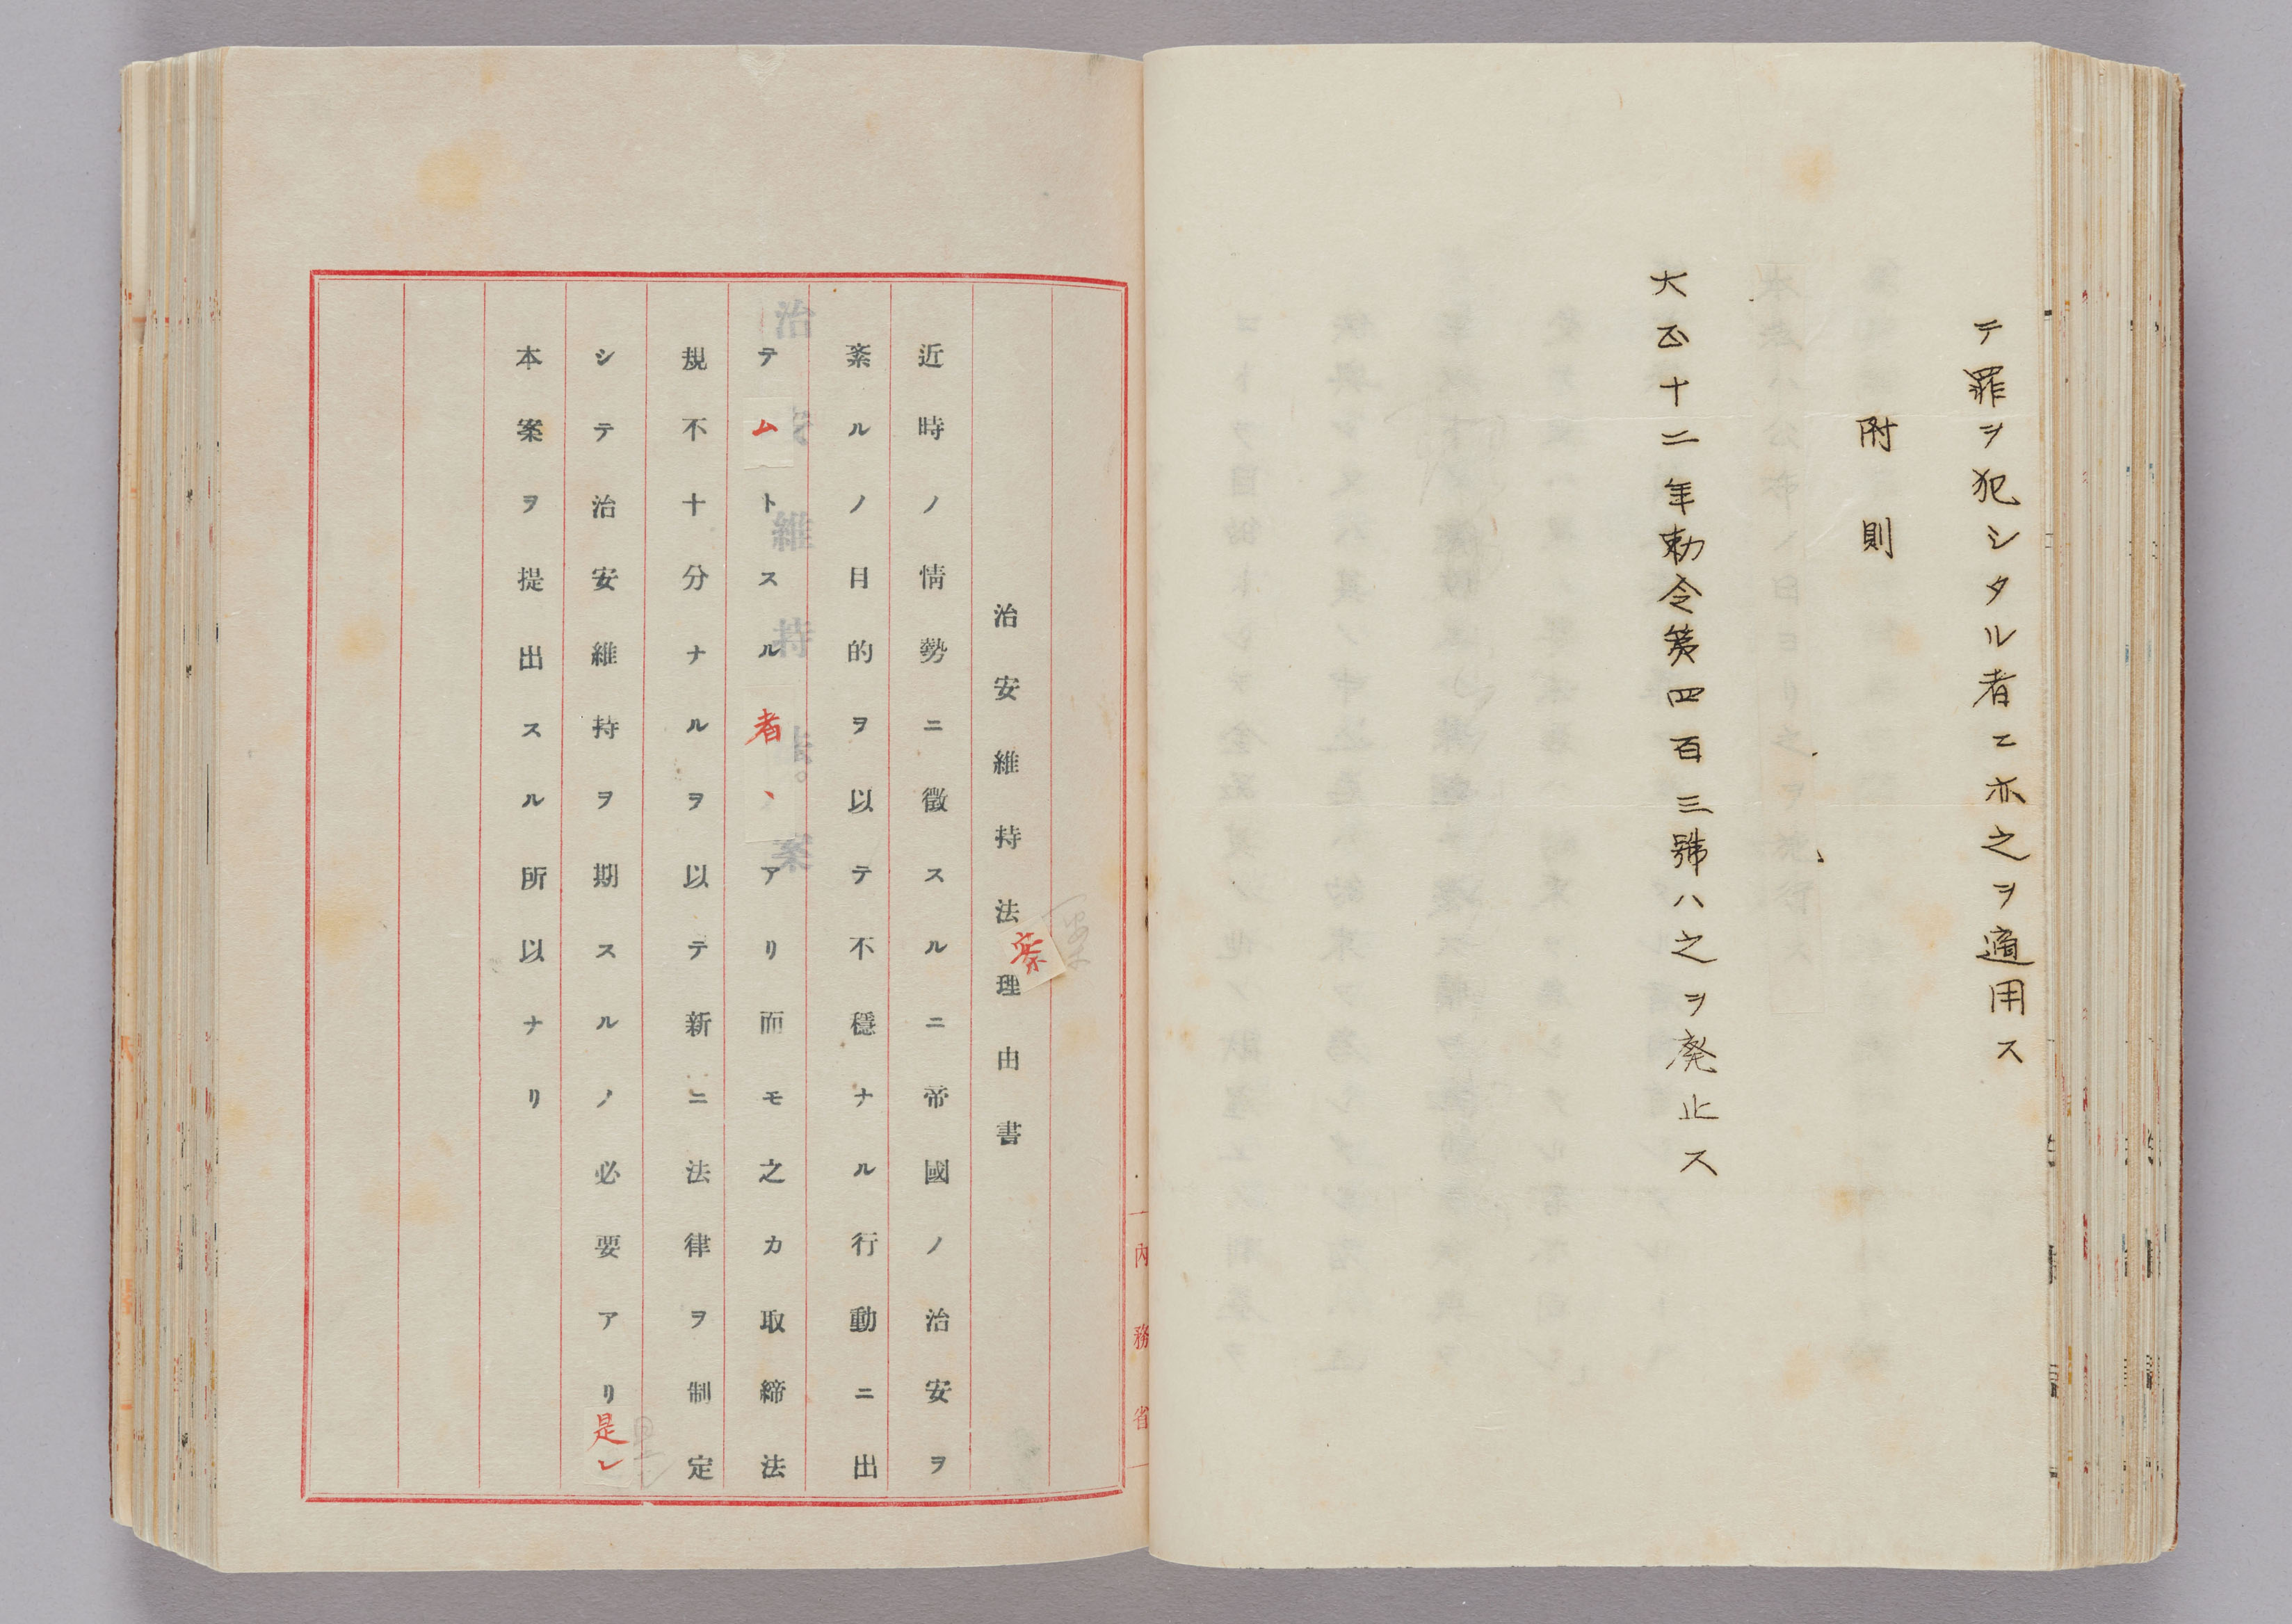 テ罪ヲ犯シタル者ニ亦之ヲ適用ス
附則
大正十二年勅令第四百三號ハ之ヲ廃止ス
治安維持法案理由書
近時ノ情勢ニ徴スルニ帝國ノ治安ヲ
紊ルノ目的ヲ以テ不穩ナル行動ニ出
テムトスル者、アリ而モ之カ取締法
規不十分ナルヲ以テ新ニ法律ヲ制定
シテ治安維持ヲ期スルノ必要アリ是レ
本案ヲ提出スル所以ナリ
內務省